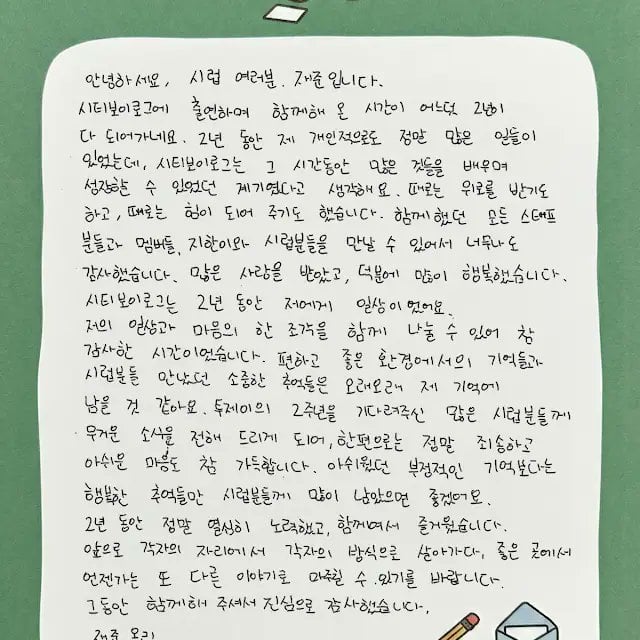 안녕하세요, 시럽 여러분. 재준입니다.
시티보이로그에 출연하며 함께해 온 시간이 어느덧 2년이
다 되어가네요. 2년 동안 제 개인적으로도 정말 많은 일들이
있었는데, 시티보이로그는 그 시간동안 많은 것들을 배우며
성장할 수 있었던 계기였다고 생각해요. 때로는 위로를 받기도
하고, 때로는 힘이 되어 주기도 했습니다. 함께했던 모든 스태프
분들과 멤버들, 지한이와 시럽분들을 만날 수 있어서 너무나도
감사했습니다. 많은 사랑을 받았고, 덕분에 많이 행복했습니다.
시티보이로그는 2년 동안 저에게 일상이었어요.
저의 일상과 마음의 한 조각을 함께 나눌 수 있어 참
감사한 시간이었습니다. 편하고 좋은 환경에서의 기억들과
시럽분들 만났던 소중한 추억들은 오래오래 제 기억에
남을 것 같아요. 투제이의 2주년을 기다려주신 많은 시럽분들께
무거운 소식을 전해 드리게 되어, 한편으로는 정말 죄송하고
아쉬운 마음도 참 가득합니다. 아쉬웠던 부정적인 기억보다는
행복한 추억들만 시럽분들께 많이 남았으면 좋겠어요.
2년 동안 정말 열심히 노력했고, 함께여서 즐거웠습니다.
앞으로 각자의 자리에서 각자의 방식으로 살아가다, 좋은 곳에서
언젠가는 또 다른 이야기로 마주할 수 있기를 바랍니다.
그동안 함께해 주셔서 진심으로 감사했습니다.
재준 올림